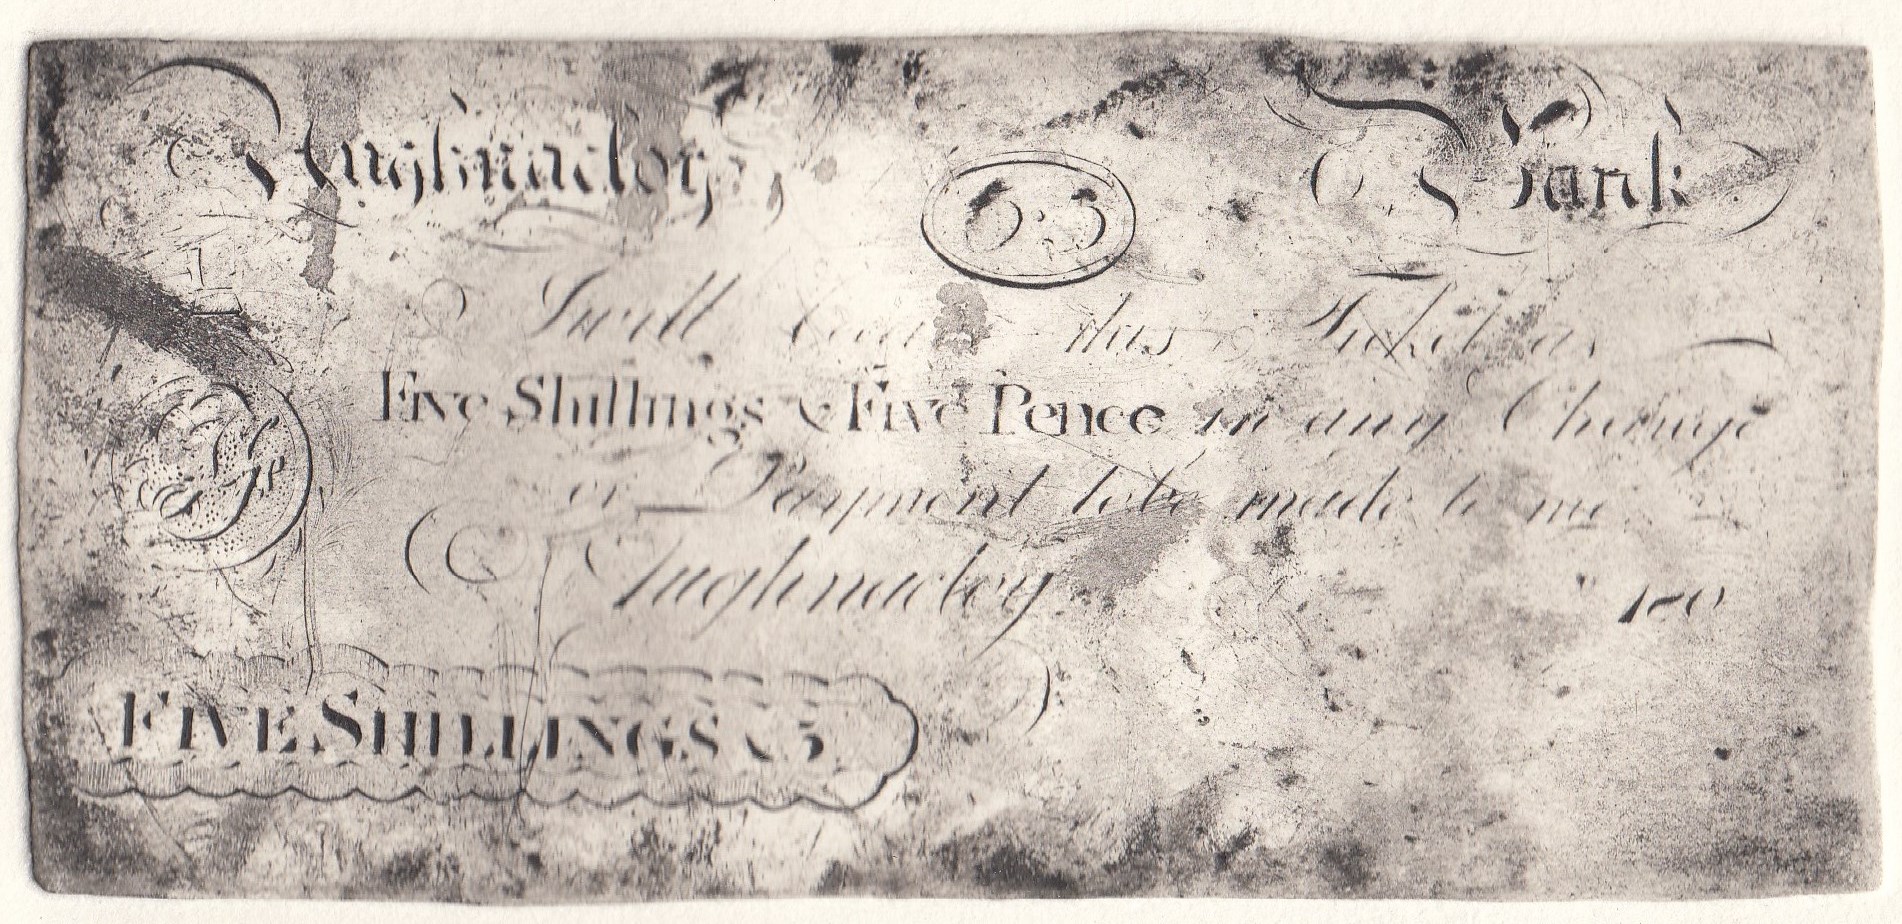 Aughnacloy Bank
5:5
I will this Ticket as
Five Shillings & Five Pence in any Change
or Payment to be made to me
Aughnacloy 180
FIVE SHILLINGS & 5